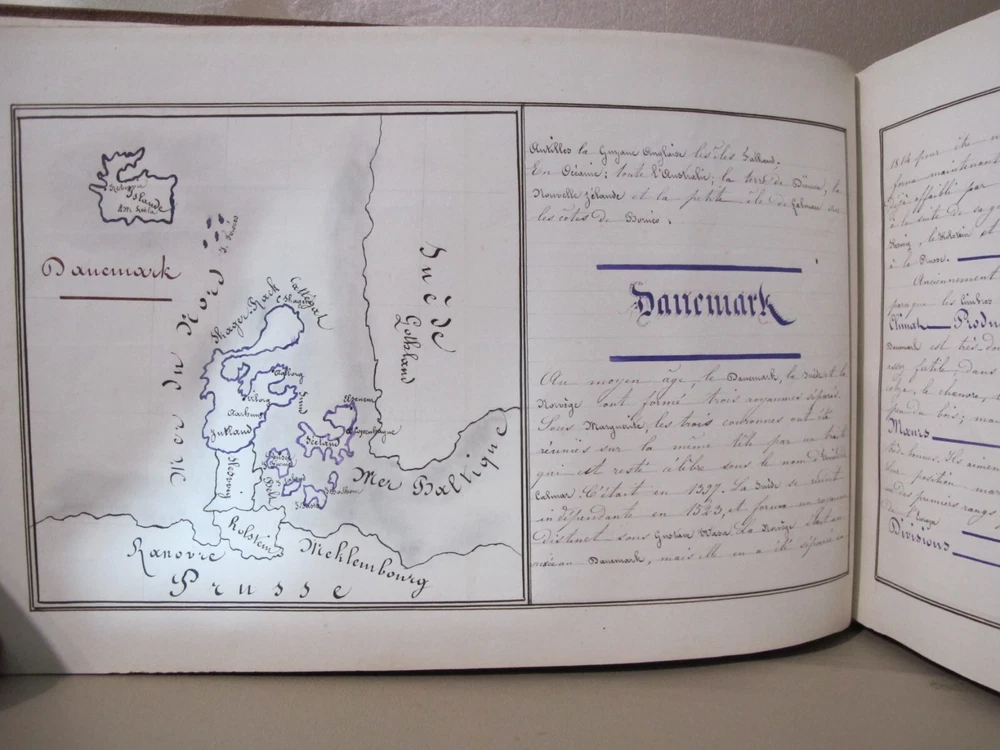 Islande
I. Feroës
Danemark
Mer du Nord
Skager Rack
Cattégat
C. Skagen
Suède
Gothland
Aalborg
Viborg
Aarhuus
Jutland
Sund
Elseneur
Copenhague
Seeland
Mer Baltique
Holstein
Hanovre
Meklembourg
Prusse
Antilles la Guyane Anglaise les îles
En Océanie: toute l'Australie; la terre de Diémen, la
Nouvelle Zélande et la petite île de Labuan sur
les côtes de Bornéo.
Danemark
Au moyen âge, le Danemark, la Suède et la
Norvège ont formé trois royaumes séparés.
Sous Marguerite, les trois couronnes ont été
réunies sur la même tête par un traité
qui est resté célèbre sous le nom
Calmar. C'était en 1397. La Suède se rendit
indépendante en 1523, et forma un royaume
distinct sous Gustave Wasa. La Norvège
Danemark, mais elle en a été séparée en
1814 pour être
forme maintenant
déjà affaibli par
à la suite de sa
le Holstein et
à la Prusse.
Anciennement
parce que les Cimbres
Climat — Produ
Danemark est très-
fertile, dans
le chanvre,
peu de bois; mais
Mœurs
Ils aiment
position
des premiers rangs
de l'Europe
Divisions